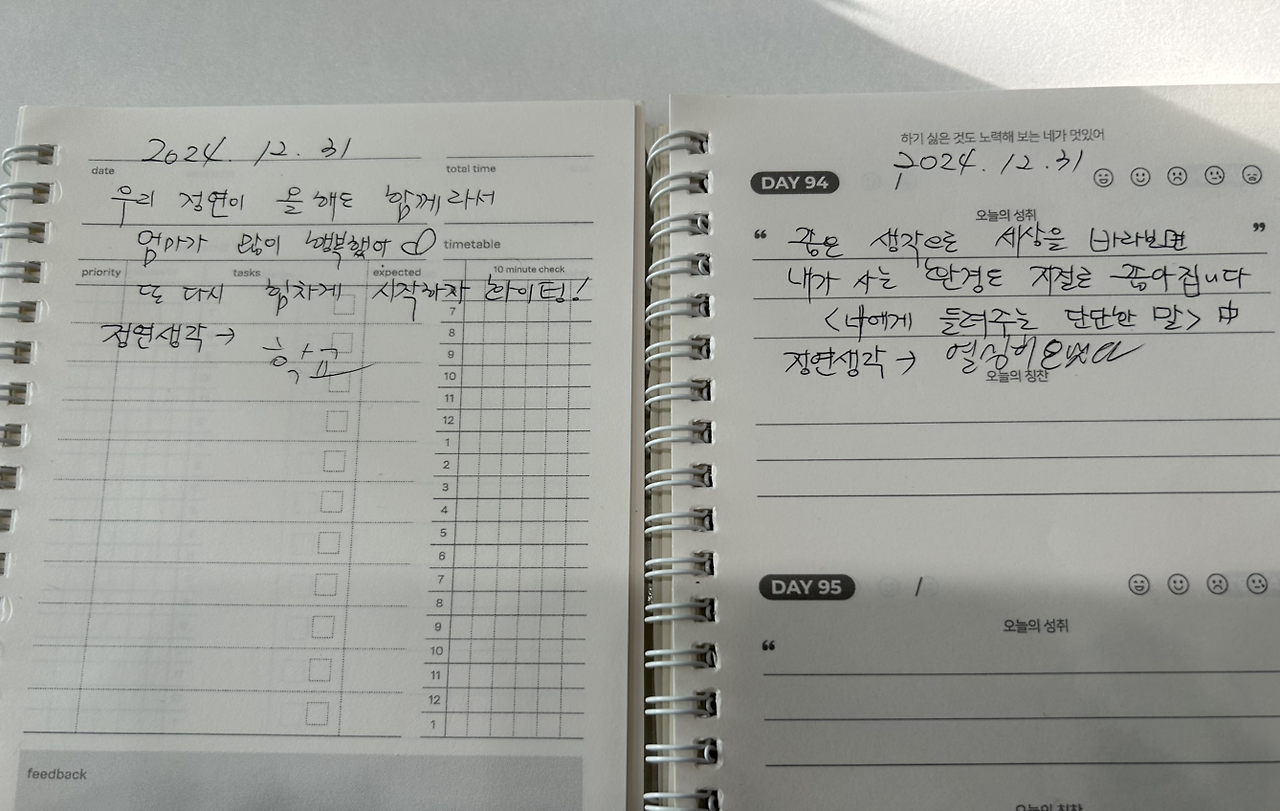 2024. 12. 31
date
total time
우리 정연이 올 해도 함께라서
엄마가 많이 행복했어
timetable
priority
tasks
expected
10 minute check
또 다시 힘차게 시작하자 화이팅!
7
정연생각 →
8
학교
9
10
11
12
1
2
3
4
5
6
7
8
9
10
11
12
1
feedback
하기 싫은 것도 노력해 보는 네가 멋있어
2024. 12. 31
DAY 94
/
오늘의 성취
“ 좁은 생각으로 세상을 바라보면 ”
내가 사는 환경도 저절로 좁아집니다
<너에게 들려주는 단단한 말> 中
정연생각 → 열심히
오늘의 칭찬
DAY 95
/
오늘의 성취
“
오늘의 칭찬